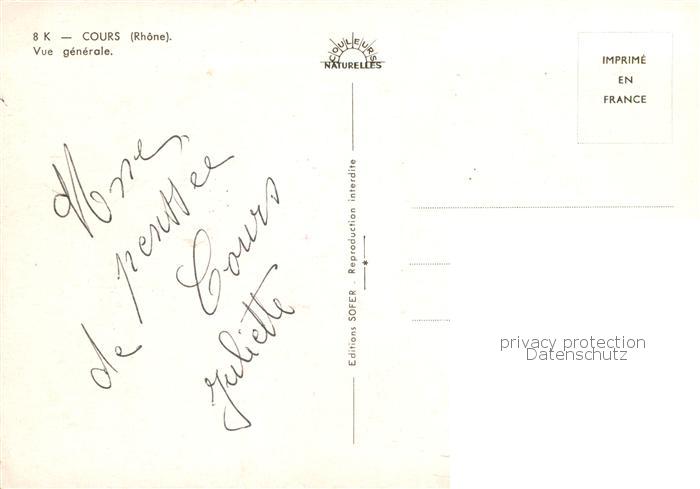 8 K — COURS (Rhône).
Vue générale.
COULEURS
NATURELLES
IMPRIMÉ
EN
FRANCE
de pensée
Cours
Juliette
Editions SOFER . Reproduction interdite
privacy protection
Datenschutz